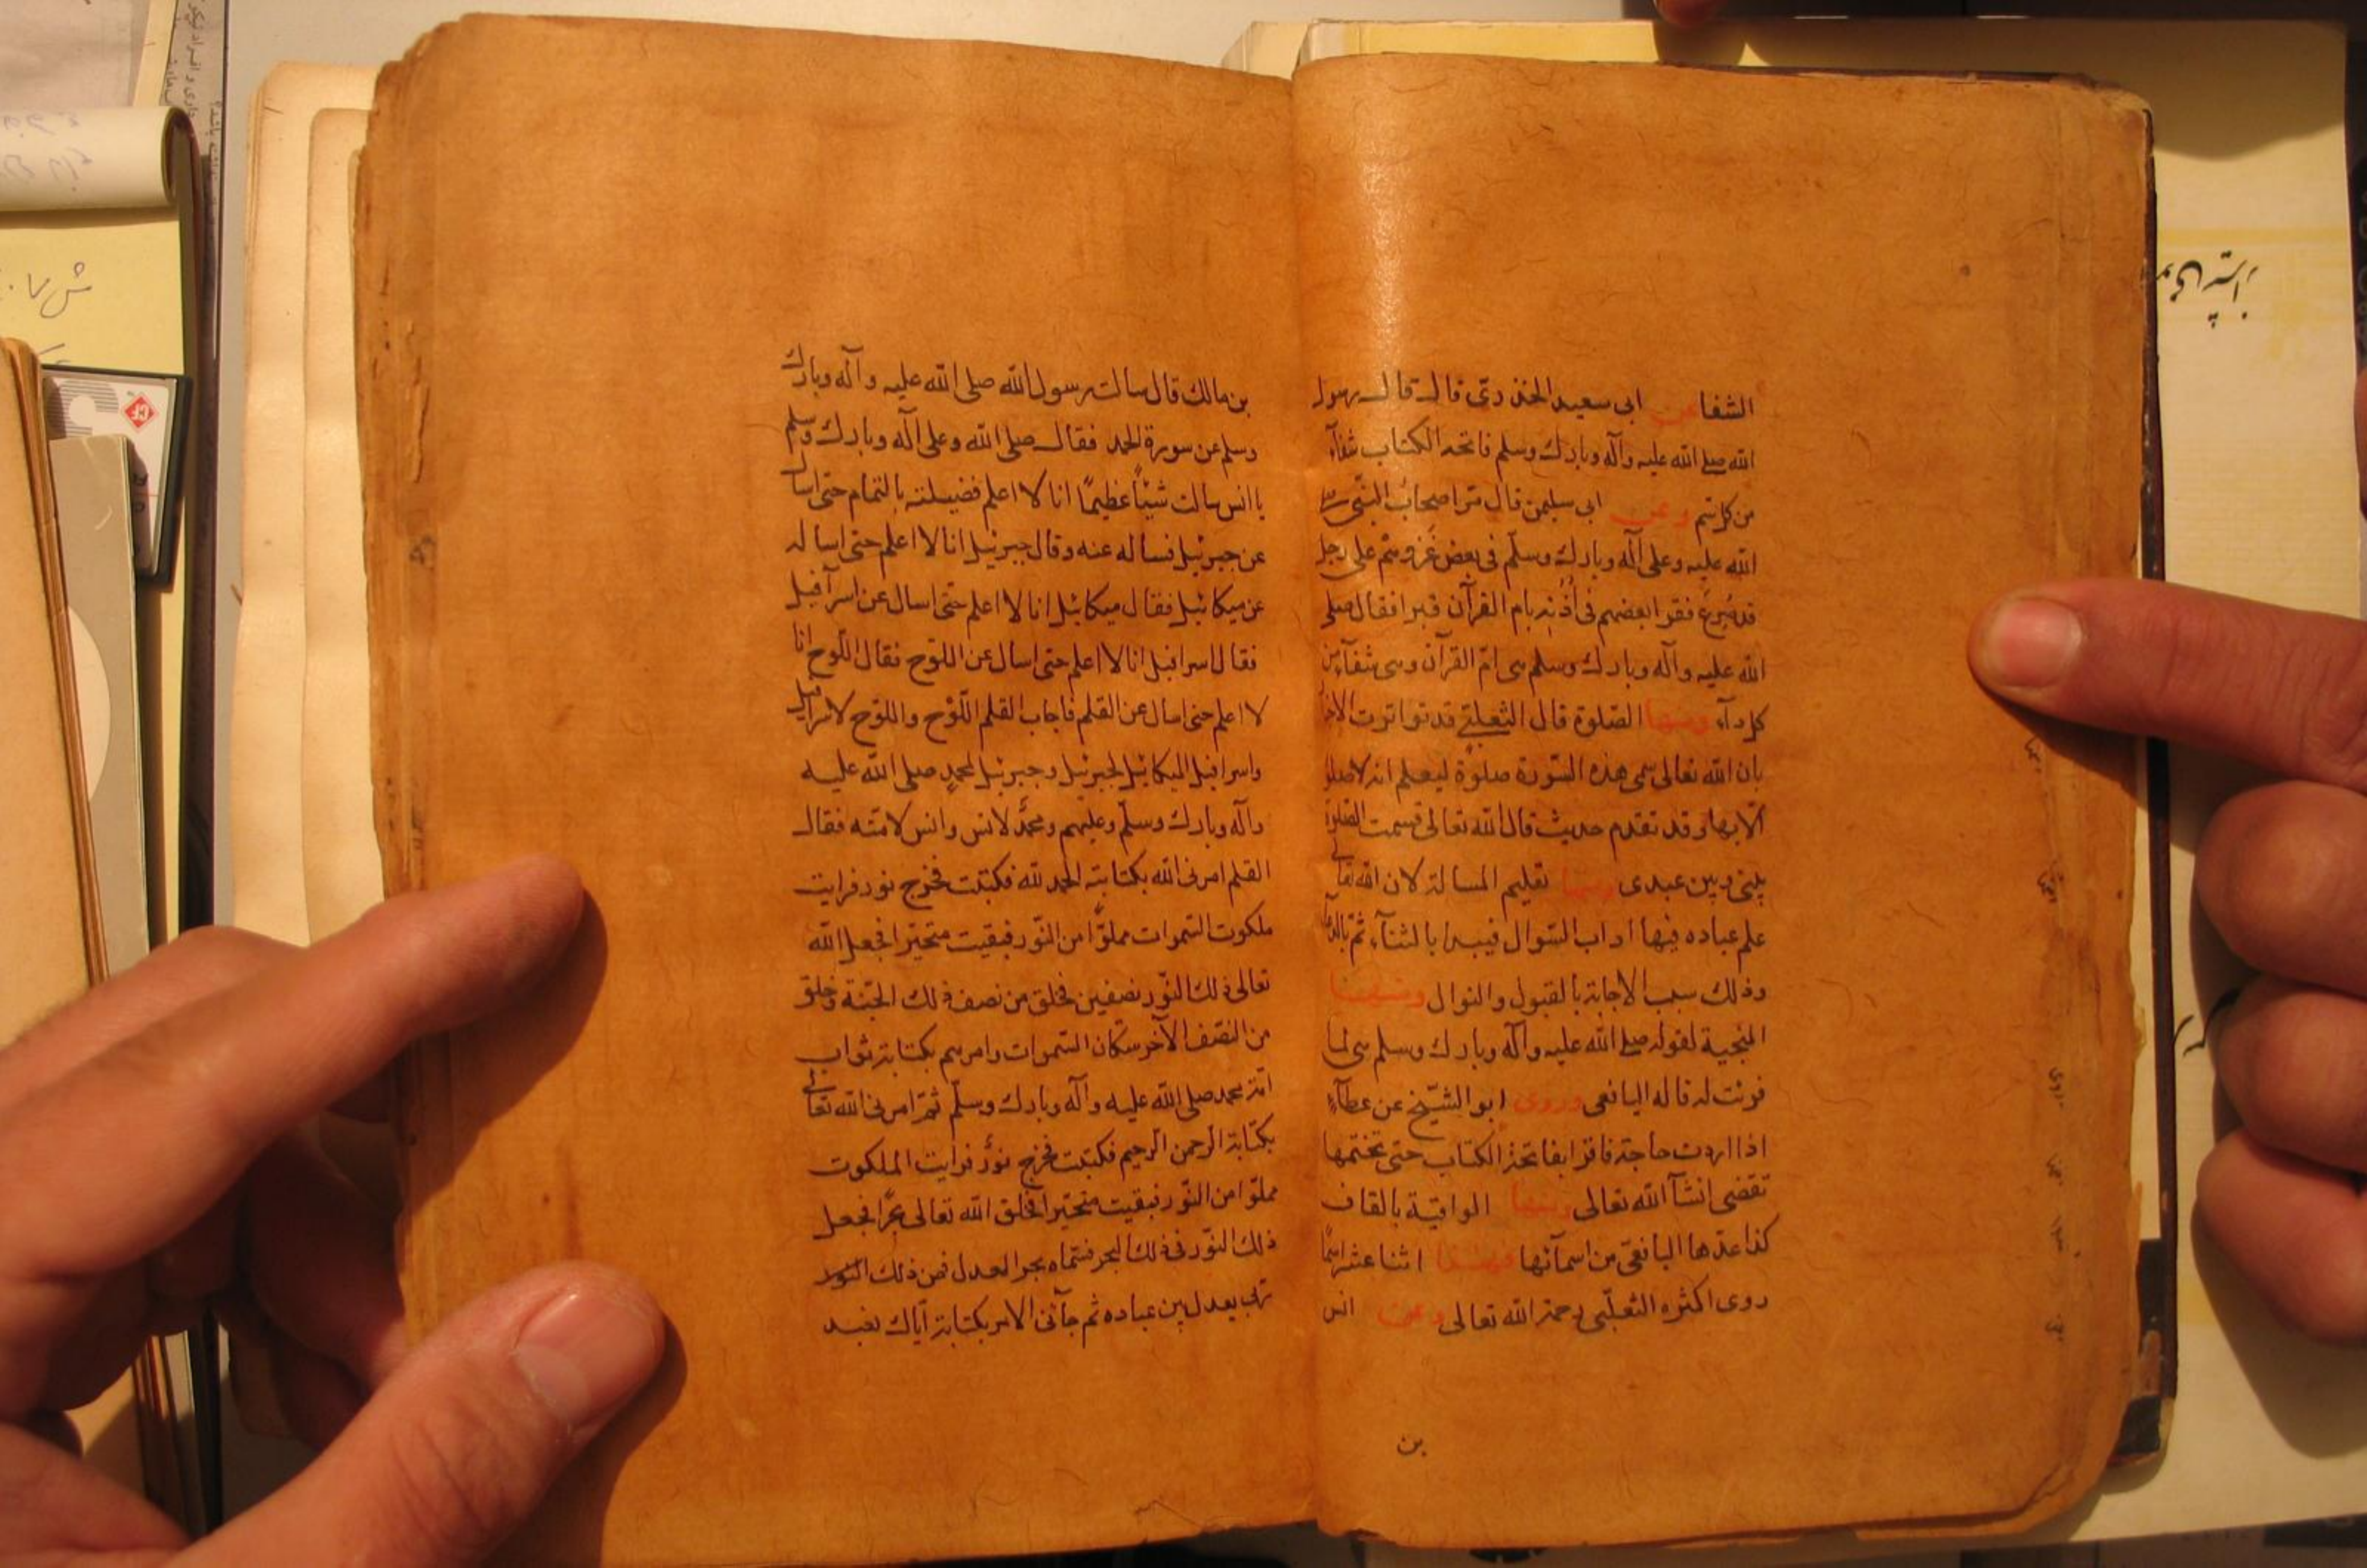 الشفا عن ابى سعيد الخذ رىّ قال قال رسول
الله صلى الله عليه وآله وبارك وسلم فاتحة الكتاب شفآء
من كل سم وعن ابى سليمن قال مرّ اصحاب النبّى صلى
الله عليه وعلى آله وبارك وسلّم فى بعض غزوهم على رجل
قد صُرِعَ فقرا بعضهم فى اُذُنِه بام القرآن فبرا فقال صلى
الله عليه وآله وبارك وسلم هى امّ القرآن وهى شفآء من
كل دآء ومنها الصّلوة قال الثعلبىّ قد تواترت الاخ
بان الله تعالى سمى هذه السّورة صلوة ليعلم انه لا صلو
الّا بها وقد تقدم حديث قال الله تعالى قسمت الصّلوة
بينى وبين عبدى ومنها تعليم المسالة لان الله تعالى
علم عباده فيها اداب السّوال فيبدا بالثنآء ثمّ بالدعآء
وذلك سبب الاجابة بالقبول والنوال ومنها
المنجية لقوله صلى الله عليه وآله وبارك وسلم هى لما
قرئت له قاله اليافعى وروى ابو الشّيخ عن عطآء
اذا اردت حاجة فاقرا بفاتحة الكتاب حتى تختمها
تقضى انشآ الله تعالى ومنها الواقية بالقاف
كذا عدّها اليافعىّ من اسمآئها فهذا اثنا عشر اسمًا
روى اكثره الثعلبّى رحمة الله تعالى وعن انس
بن
بن مالك قال سالت رسول الله صلى الله عليه وآله وبارك
وسلم عن سورة الحمد فقال صلى الله وعلى آله وبارك وسلم
يا انس سالت شيئًا عظيمًا انا لا اعلم فضيلته بالتمام حتى اسال
عن جبرئيل فساله عنه وقال جبرئيل انا لا اعلم حتى اساله
عن ميكائيل فقال ميكائيل انا لا اعلم حتى اسال عن اسرآفيل
فقال اسرافيل انا لا اعلم حتى اسال عن اللوّح فقال اللّوح انا
لا اعلم حتى اسال عن القلم فاجاب القلم اللّوح واللوّح لاسرافيل
واسرافيل لميكائيل لجبرئيل وجبرئيل لمحمدٍ صلى الله عليه
وآله وبارك وسلّم وعليهم ومحمّد لانس وانس لامته فقال
القلم امرنى الله بكتابة الحمد لله فكتبت فخرج نور فرايت
ملكوت السّموات مملوًّا من النّور فبقيت متحيّرا فجعل الله
تعالى ذلك النّور نصفين فخلق من نصف ذلك الجنّة وخلق
من النصّف الآخر سكان السّموات وامرهم بكتابة ثواب
امّة محمد صلى الله عليه وآله وبارك وسلّم ثمّ امرنى الله تعالى
بكتابة الرحمن الرحيم فكتبت فخرج نورٌ فرايت الملكوت
مملوّا من النّور فبقيت متحيّرا فخلق الله تعالى بحرًا فجعل
ذلك النّور فى ذلك البحر فسّماه بحر العدل فمن ذلك النّور
يعدل بين عباده ثم جآئنى الامر بكتابة ايّاك نعبد